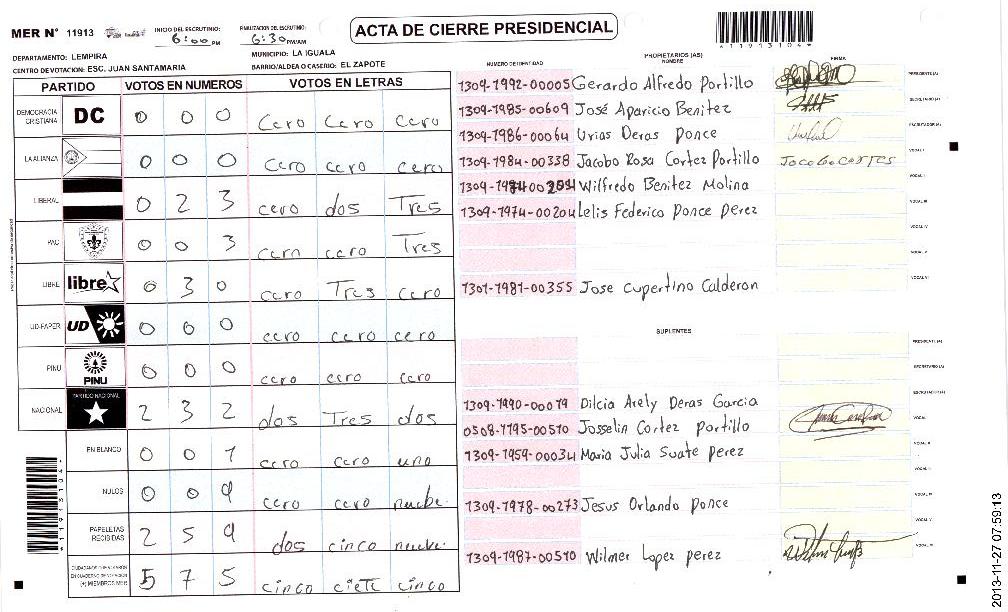 MER N° 11913 INICIO DEL ESCRUTINIO: 6:00 PM FINALIZACION DEL ESCRUTINIO: 6:30 PM/AM
ACTA DE CIERRE PRESIDENCIAL
*11913104*
DEPARTAMENTO: LEMPIRA MUNICIPIO: LA IGUALA
CENTRO DE VOTACION: ESC. JUAN SANTAMARIA BARRIO/ALDEA O CASERIO: EL ZAPOTE
PARTIDO VOTOS EN NUMEROS VOTOS EN LETRAS
DEMOCRACIA CRISTIANA DC 0 0 0 cero cero cero
LA ALIANZA 0 0 0 cero cero cero
LIBERAL 0 2 3 cero dos Tres
PAC 0 0 3 cero cero Tres
LIBRE libre 0 3 0 cero Tres cero
UD-FAPER UD 0 0 0 cero cero cero
PINU PINU 0 0 0 cero cero cero
NACIONAL PARTIDO NACIONAL 2 3 2 dos Tres dos
EN BLANCO 0 0 1 cero cero uno
NULOS 0 0 9 cero cero
PAPELETAS RECIBIDAS 2 5 9 dos cinco
(+) MIEMBROS MER 5 7 5 cinco ciete cinco
PROPIETARIOS (AS)
NUMERO DE IDENTIDAD NOMBRE FIRMA
1309-1992-00005 Gerardo Alfredo Portillo PRESIDENTE (A)
1309-1985-00609 José Aparicio Benitez SECRETARIO (A)
1309-1986-00064 Urias Deras Ponce ESCRUTADOR (A)
1309-1984-00338 Jacobo Rosa Cortez Portillo Jocobo cortes VOCAL I
Wilfredo Benitez Molina VOCAL II
1309-1974-00204 Lelis Federico Ponce Perez VOCAL III
VOCAL IV
VOCAL V
1301-1981-00355 Jose Cupertino Calderon VOCAL VI
SUPLENTES
PRESIDENTE (A)
SECRETARIO (A)
1309-1990-00079 Dilcia Arely Deras Garcia ESCRUTADOR (A)
0508-1995-00510 Josselin Cortez Portillo VOCAL
1309-1959-00034 Maria Julia Suate perez VOCAL II
VOCAL III
1309-1978-00273 Jesus Orlando Ponce VOCAL IV
VOCAL V
1309-1987-00510 Wilmer Lopez perez VOCAL VI
*11913104*
2013-11-27 07:59:13